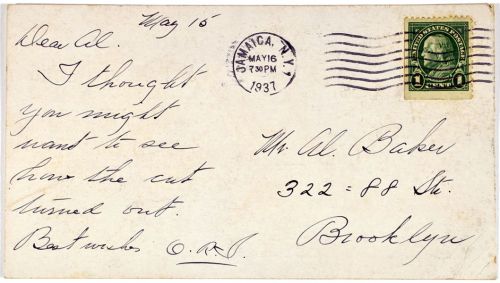 May 15
Dear Al.
I thought
you might
want to see
how the cut
turned out.
Best wishes
JAMAICA, N.Y.
MAY 16
7 30 PM
1937
UNITED STATES POSTAGE
1 1
Mr. Al. Baker
322 = 88 St.
Brooklyn